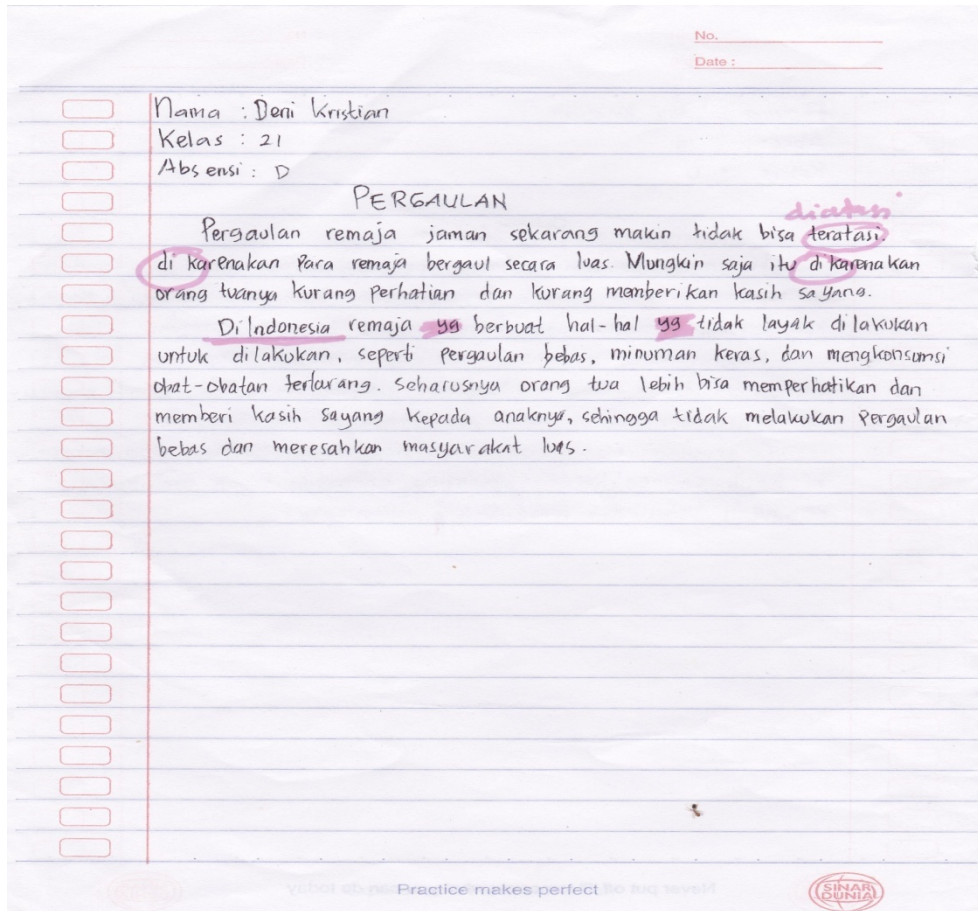 No.
Date :
Nama : Deni Kristian
Kelas : 21
Absensi : D
PERGAULAN
diatasi
Pergaulan remaja jaman sekarang makin tidak bisa teratasi.
di karenakan Para remaja bergaul secara luas. Mungkin saja itu di karenakan
orang tuanya kurang perhatian dan kurang memberikan kasih sayang.
Di Indonesia remaja yg berbuat hal-hal yg tidak layak di lakukan
untuk dilakukan, seperti pergaulan bebas, minuman keras, dan mengkonsumsi
obat-obatan terlarang. Seharusnya orang tua lebih bisa memperhatikan dan
memberi kasih sayang kepada anaknya, sehingga tidak melakukan pergaulan
bebas dan meresahkan masyarakat luas.
Practice makes perfect
SINAR
DUNIA